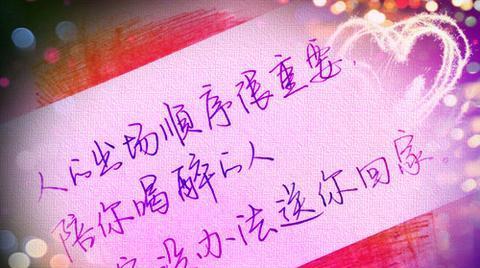 人的出场顺序很重要,
陪你喝醉的人
没办法送你回家。